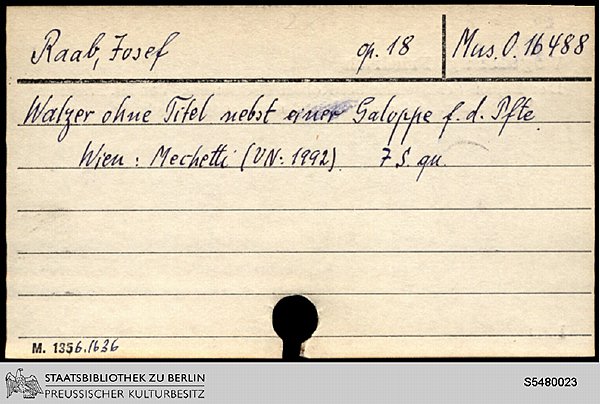 Raab, Josef op. 18 Mus. O. 16488
Walzer ohne Titel nebst einer Galoppe f. d. Pfte.
Wien : Mechetti (VN: 1992). 7 S. qu.
M. 1356.1636
STAATSBIBLIOTHEK ZU BERLIN
PREUSSISCHER KULTURBESITZ
S5480023